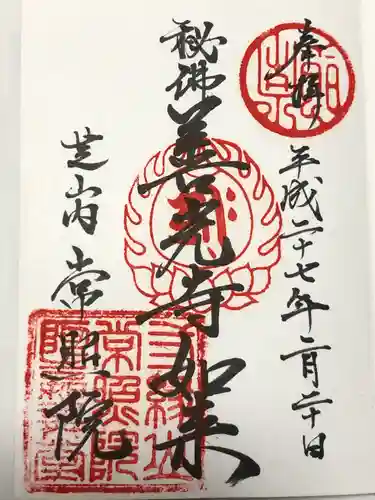 奉拝
平成二十七年二月二十日
秘佛
善光寺如来
芝山内
常照院